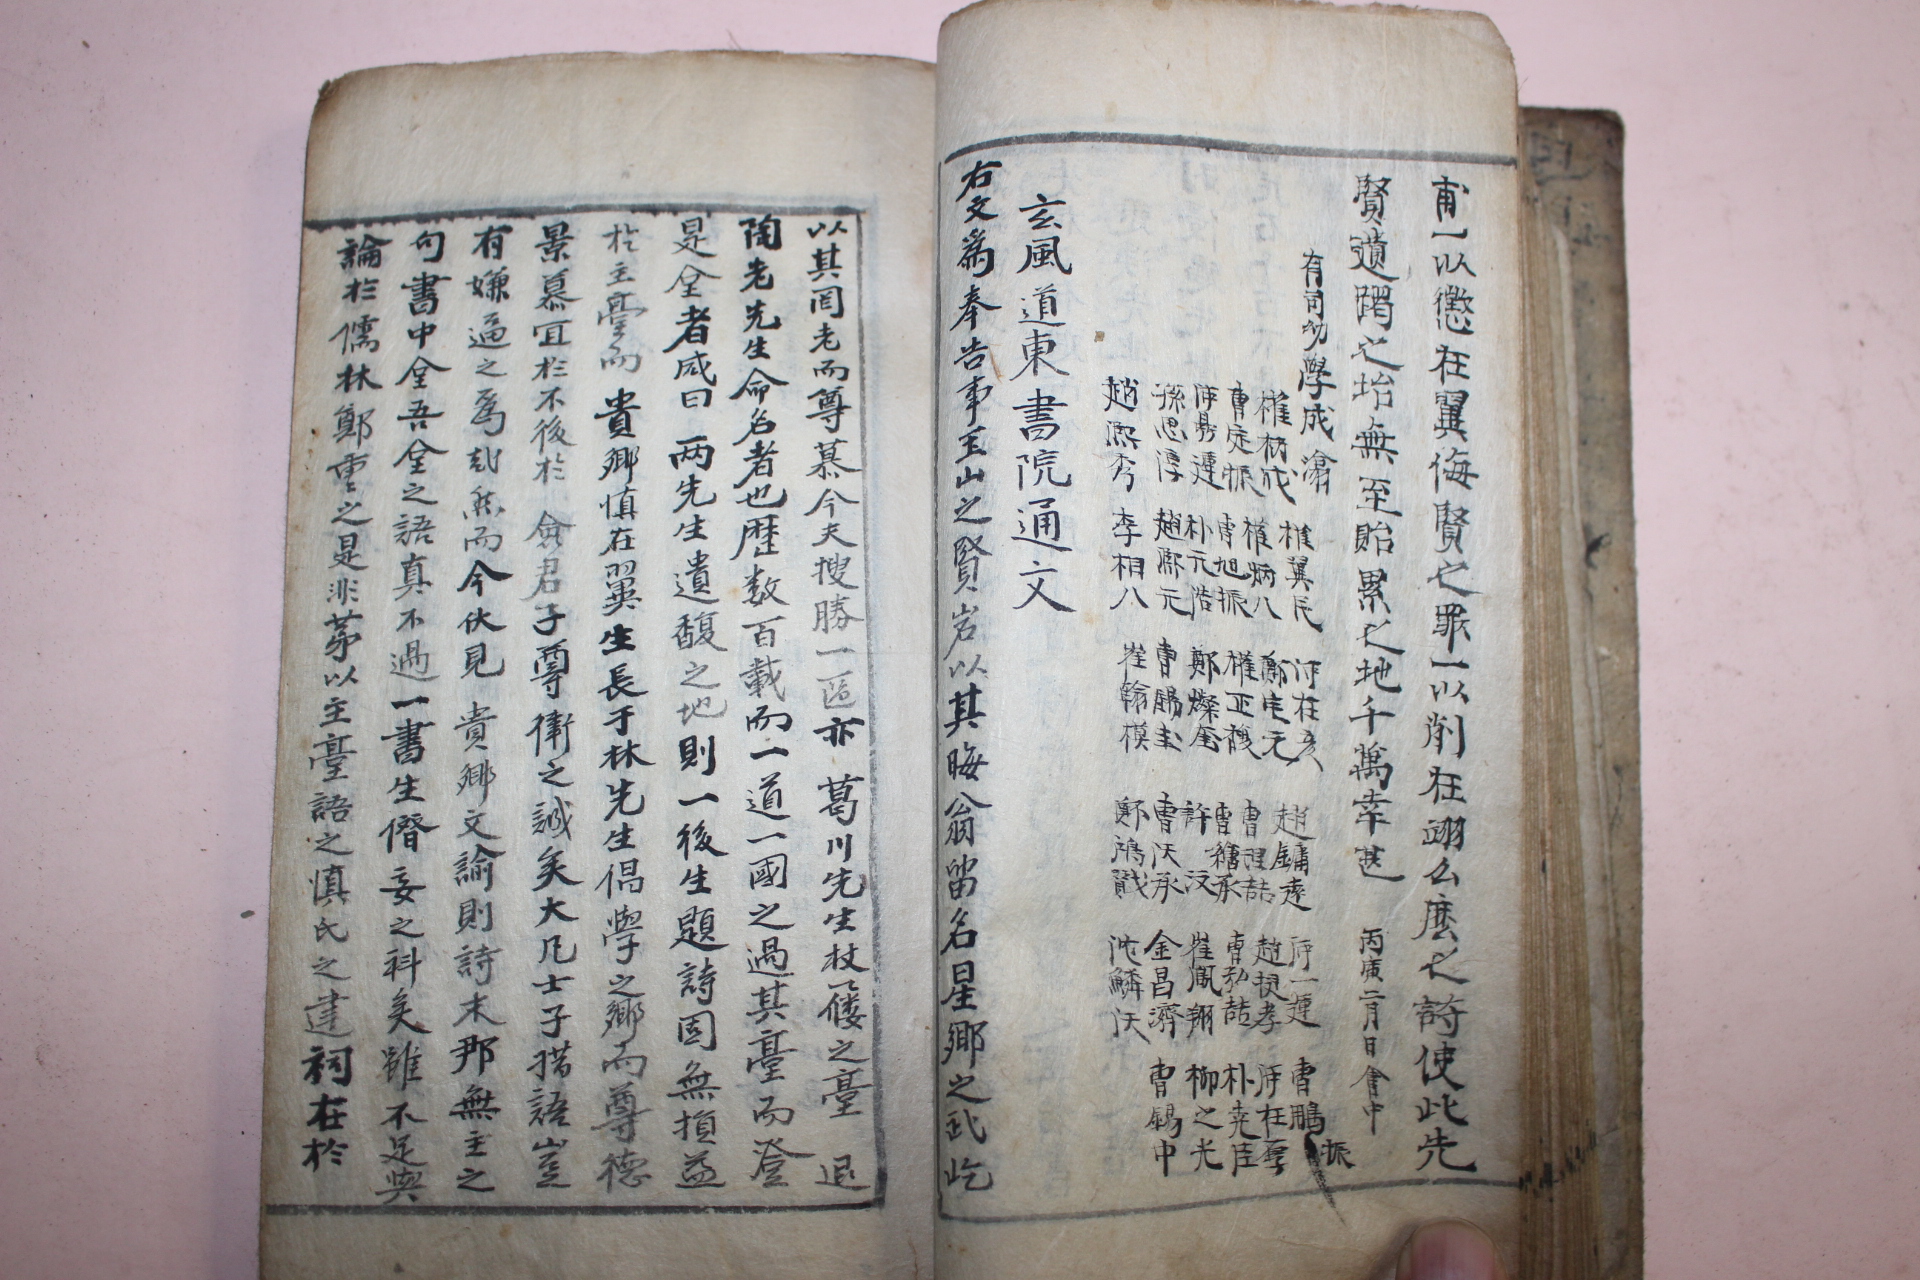 甫一以懲在翼侮賢之罪一以削在翊么麽之詩使此先
賢遺躅之坮無至貽累之地千萬幸甚 丙寅二月日會中
有司幼學成瀹 權翼民 河在亥 趙鏞遠 許一運 曹鵬振
權柄成 權炳八 鄭宅元 曹秉喆 趙挺孝 許在奪
曹定振 曹旭振 權正馥 曹穗承 曹弘喆 朴堯臣
許昺運 朴元浩 鄭燦奎 許汶 崔鳳翔 柳之光
孫思淳 趙熙元 曹錫圭 曹沃承 金昌濟 曹錫中
趙熙秀 李相八 崔翰模 鄭鴻賢 沈鱗沃
玄風道東書院通文
右文爲奉告事玉山之賢岩以其晦翁留名星鄕之武屹
以其岡老而尊慕今夫搜勝一區亦 葛川先生杖屨之臺 退
陶老先生命名者也歷数百載而一道一國之過其臺而登
是坌者咸曰 两先生遺馥之地則一後生題詩固無損益
於主臺而 貴鄕愼在翼生長于林先生倡學之鄕而尊德
景慕宜於不後於 僉君子尊衛之誠矣大凡士子措語豈
有嫌逼之爲哉然而今伏見 貴鄕文諭則詩末那無主之
句書中坌吾坌之語真不過一書生僭妄之科矣雖不足與
論於儒林鄭重之是非茅以主臺語之愼氏之建祠在於